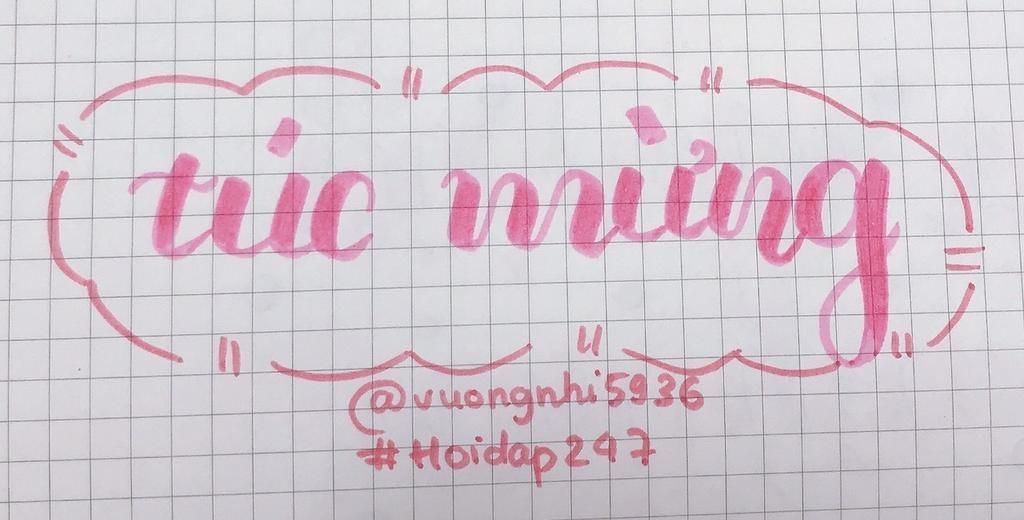 túc mừng
@vuongnhi5936
#Hoidap247